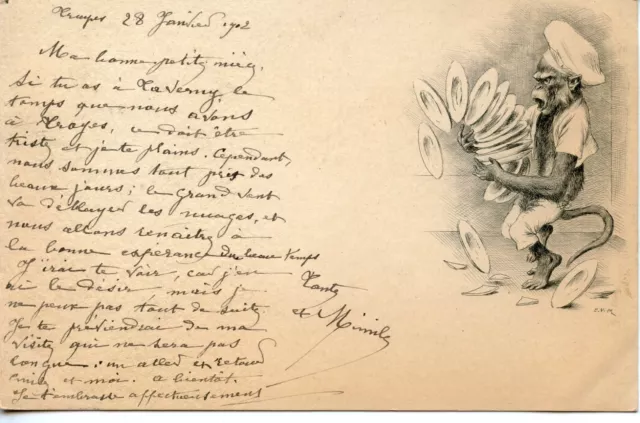 Troyes 28 Janvier 1902
Ma bonne petite nièce,
Si tu as à Taverny le
temps que nous avons
à Troyes, ce doit être
triste et je te plains. Cependant,
nous sommes tout près des
beaux jours ; le grand vent
va déblayer les nuages, et
nous allons renaître à
la bonne espérance du beau temps
J'irai te voir, car j'en
ai le désir mais je
ne peux pas tout de suite.
Je te préviendrai de ma
visite qui ne sera pas
longue : un aller et retour
et moi. à bientôt.
Je t'embrasse affectueusement
Tante
et Mimile